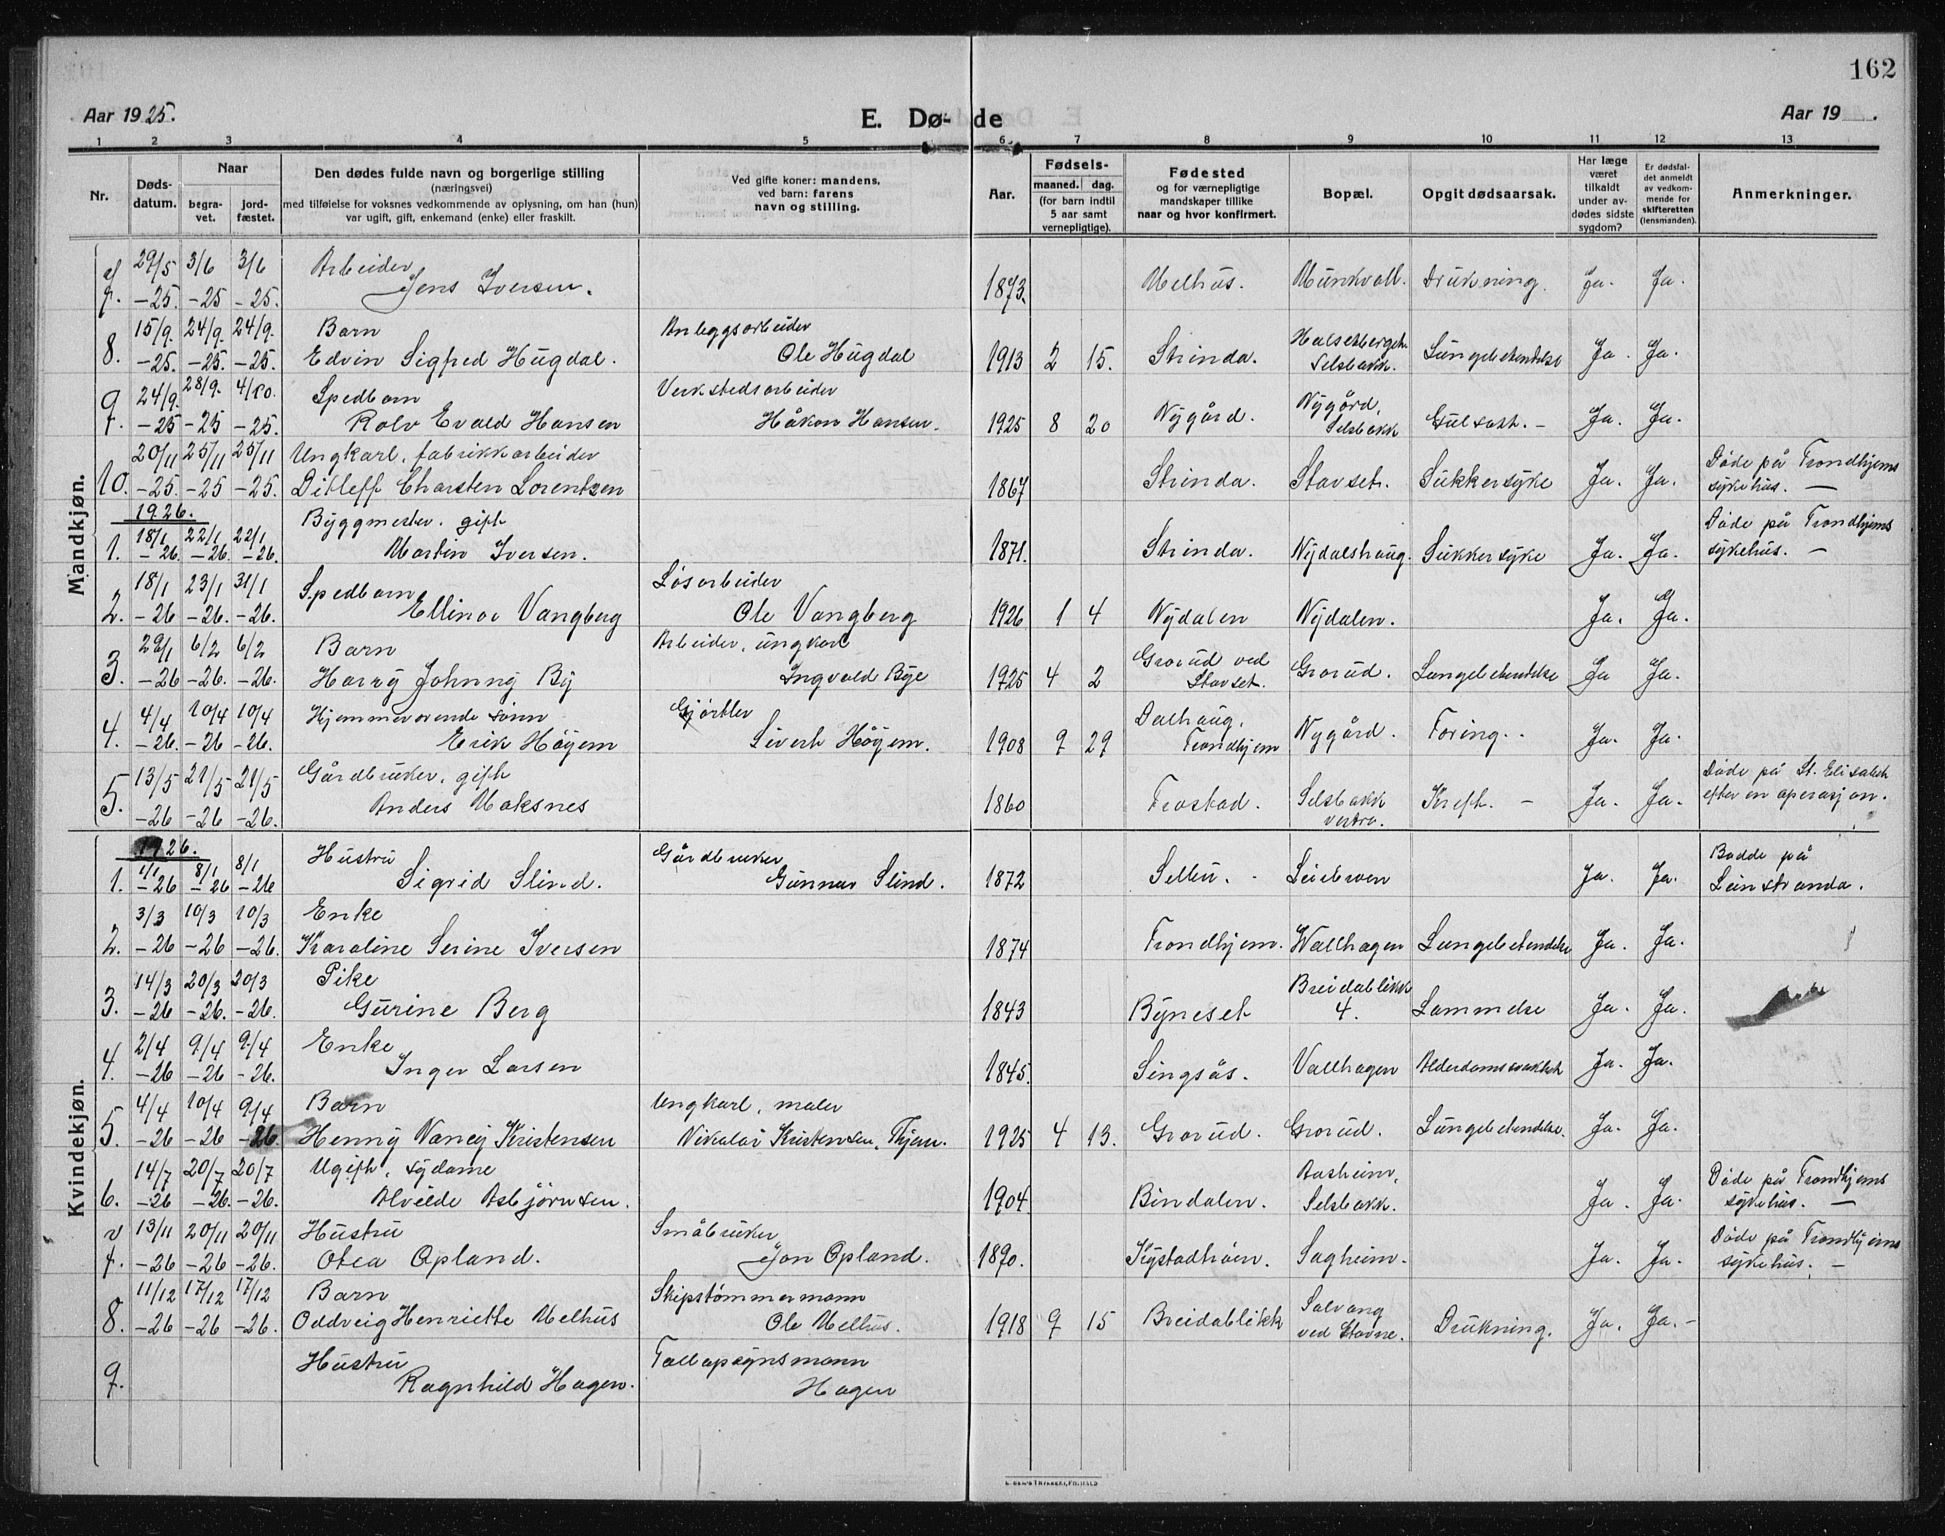 162
Aar 1925. E. Dø- de Aar 19 .
1 2 3 4 5 6 7 8 9 10 11 12 13
Nr. Døds-datum. Naar begra-vet. jord-fæstet. Den dødes fulde navn og borgerlige stilling (næringsvei) med tilføielse for voksnes vedkommende av oplysning, om han (hun) var ugift, gift, enkemand (enke) eller fraskilt. Ved gifte koner: mandens, ved barn: farens navn og stilling. Aar. Fødsels- maaned. dag. (for barn indtil 5 aar samt vernepligtige). Fødested og for værnepligtige mandskaper tillike naar og hvor konfirmert. Bopæl. Opgit dødsaarsak. Har læge været tilkaldt under av-dødes sidste sygdom? Er dødsfal-det anmeldt av vedkom-mende for skifteretten (lensmanden). Anmerkninger.
Mandkjøn.
29/5 3/6 3/6 Arbeider
7. -25. -25 -25. Jens Iversen. 1873. Melhus. Munkvoll. Drukning. Ja. Ja.
15/9. 24/9. 24/9. Barn Anleggsarbeider Halsetbergets
8. -25. -25. -25. Edvin Sigfred Hugdal. Ole Hugdal 1913 2 15. Strinda. Selsbakk. Lungebetendelse Ja. Ja.
24/9. 28/9. 4/10. Spedbarn Verkstedsarbeider Nygård,
9. -25 -25 -25. Rolv Evald Hansen Håkon Hansen. 1925 8 20 Nygård. Selsbakk Gulsott. - Ja. Ja.
20/11 25/11 25/11 Ungkarl, fabrikkarbeider Døde på Trondhjems
10. -25. -25 -25. Ditleff Charsten Lorentzen 1867 Strinda. Stavset. Sukkersyke Ja. Ja. sykehus. -
1926.
18/1 22/1 22/1 Byggmester. gift Døde på Trondhjems
1. -26. -26. -26. Martin Iversen. 1871. Strinda. Nydalshaug. Sukkersyke Ja. Ja. sykehus. -
18/1 23/1 31/1 Spedbarn Løsarbeider
2. -26 -26. -26. Ellinor Vangberg Ole Vangberg 1926 1 4 Nydalen Nydalen. Ja. Ja.
29/1 6/2 6/2 Barn Arbeider, ungkarl Grorud ved
3. -26 -26. -26. Harry Johnny By Ingvald Bye 1925 4 2 Stavset. Grorud. Lungebetendelse Ja Ja.
4/4 10/4 10/4 Hjemmeværende sønn Gjørtler Dalhaug,
4. -26. -26 -26. Erik Høyem Sivert Høyem. 1908 9 29 Trondhjem Nygård. Tæring. Ja. Ja.
13/5 21/5 21/5 Gårdbruker, gift Døde på St. Elisabeth
5. -26 -26 -26. Anders Moksnes 1860 Frostad. Selsbakk vestra. Kreft. - Ja. Ja. efter en operasjon.
Kvindekjøn.
1926.
1/1 8/1 8/1 Hustru Gårdbruker Bodde på
1. -26 -26 -26 Sigrid Slind. Gunnar Slind. 1872 Selbu. Leirbroen Ja. Ja. Leinstranda.
3/3 10/3 10/3 Enke
2. -26 -26 -26. Karoline Serine Iversen 1874 Trondhjem. Wallhagen Lungebetendelse Ja. Ja.
14/3 20/3 20/3 Pike Breidablikk
3. -26 -26. -26. Gurine Berg 1843 Byneset 4. Lammelse Ja. Ja.
2/4 9/4 9/4 Enke
4. -26 -26 -26. Inger Larsen 1845. Singsås. Vallhagen Alderdomssvakhet Ja. Ja.
4/4 10/4 9/4 Barn Ungkarl, maler
5. -26 -26 -26. Henny Nancy Kristensen Nikolai Kristensen, Thjem. 1925 4 13. Grorud. Grorud. Lungebetendelse. Ja. Ja.
14/7 20/7 20/7 Ugift, sydame Aasheim, Døde på Trondhjems
6. -26 -26. -26. Alvilde Asbjørnsen. 1904 Bindalen. Selsbakk. Ja. Ja. sykehus. -
13/11 20/11 20/11 Hustru Småbruker Døde på Trondhjems
7. -26. -26. -26. Otea Opland. Jon Opland. 1890. Kystadtrøen. Sagheim. Ja. Ja. sykehus. -
11/12 17/12 17/12 Barn Skipstømmermann Solvang
8. -26 -26 -26. Oddveig Henriette Melhus Ole Melhus. 1918 9 15 Breidablikk ved Stavne. Drukning. Ja. Ja. -
Hustru
9. Ragnhild Hagen. Hagen